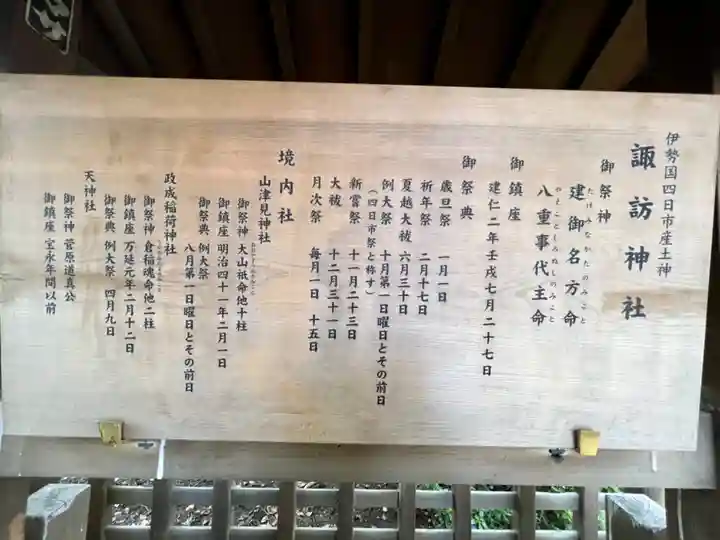 伊勢国四日市産土神
諏訪神社
御祭神
建御名方命
たけみなかたのみこと
八重事代主命
やえことしろぬしのみこと
御鎮座
建仁二年壬戌七月二十七日
御祭典
歳旦祭 一月一日
祈年祭 二月十七日
夏越大祓 六月三十日
例大祭 十月第一日曜日とその前日
(四日市祭と称す)
新嘗祭 十一月二十三日
大祓 十二月三十一日
月次祭 毎月一日 十五日
境内社
山津見神社
御祭神 大山祇命他十柱
御鎮座 明治四十一年二月一日
御祭典 例大祭
八月第一日曜日とその前日
政成稲荷神社
御祭神 倉稲魂命他二柱
御鎮座 万延元年二月十二日
御祭典 例大祭 四月九日
天神社
御祭神 菅原道真公
御鎮座 宝永年間以前